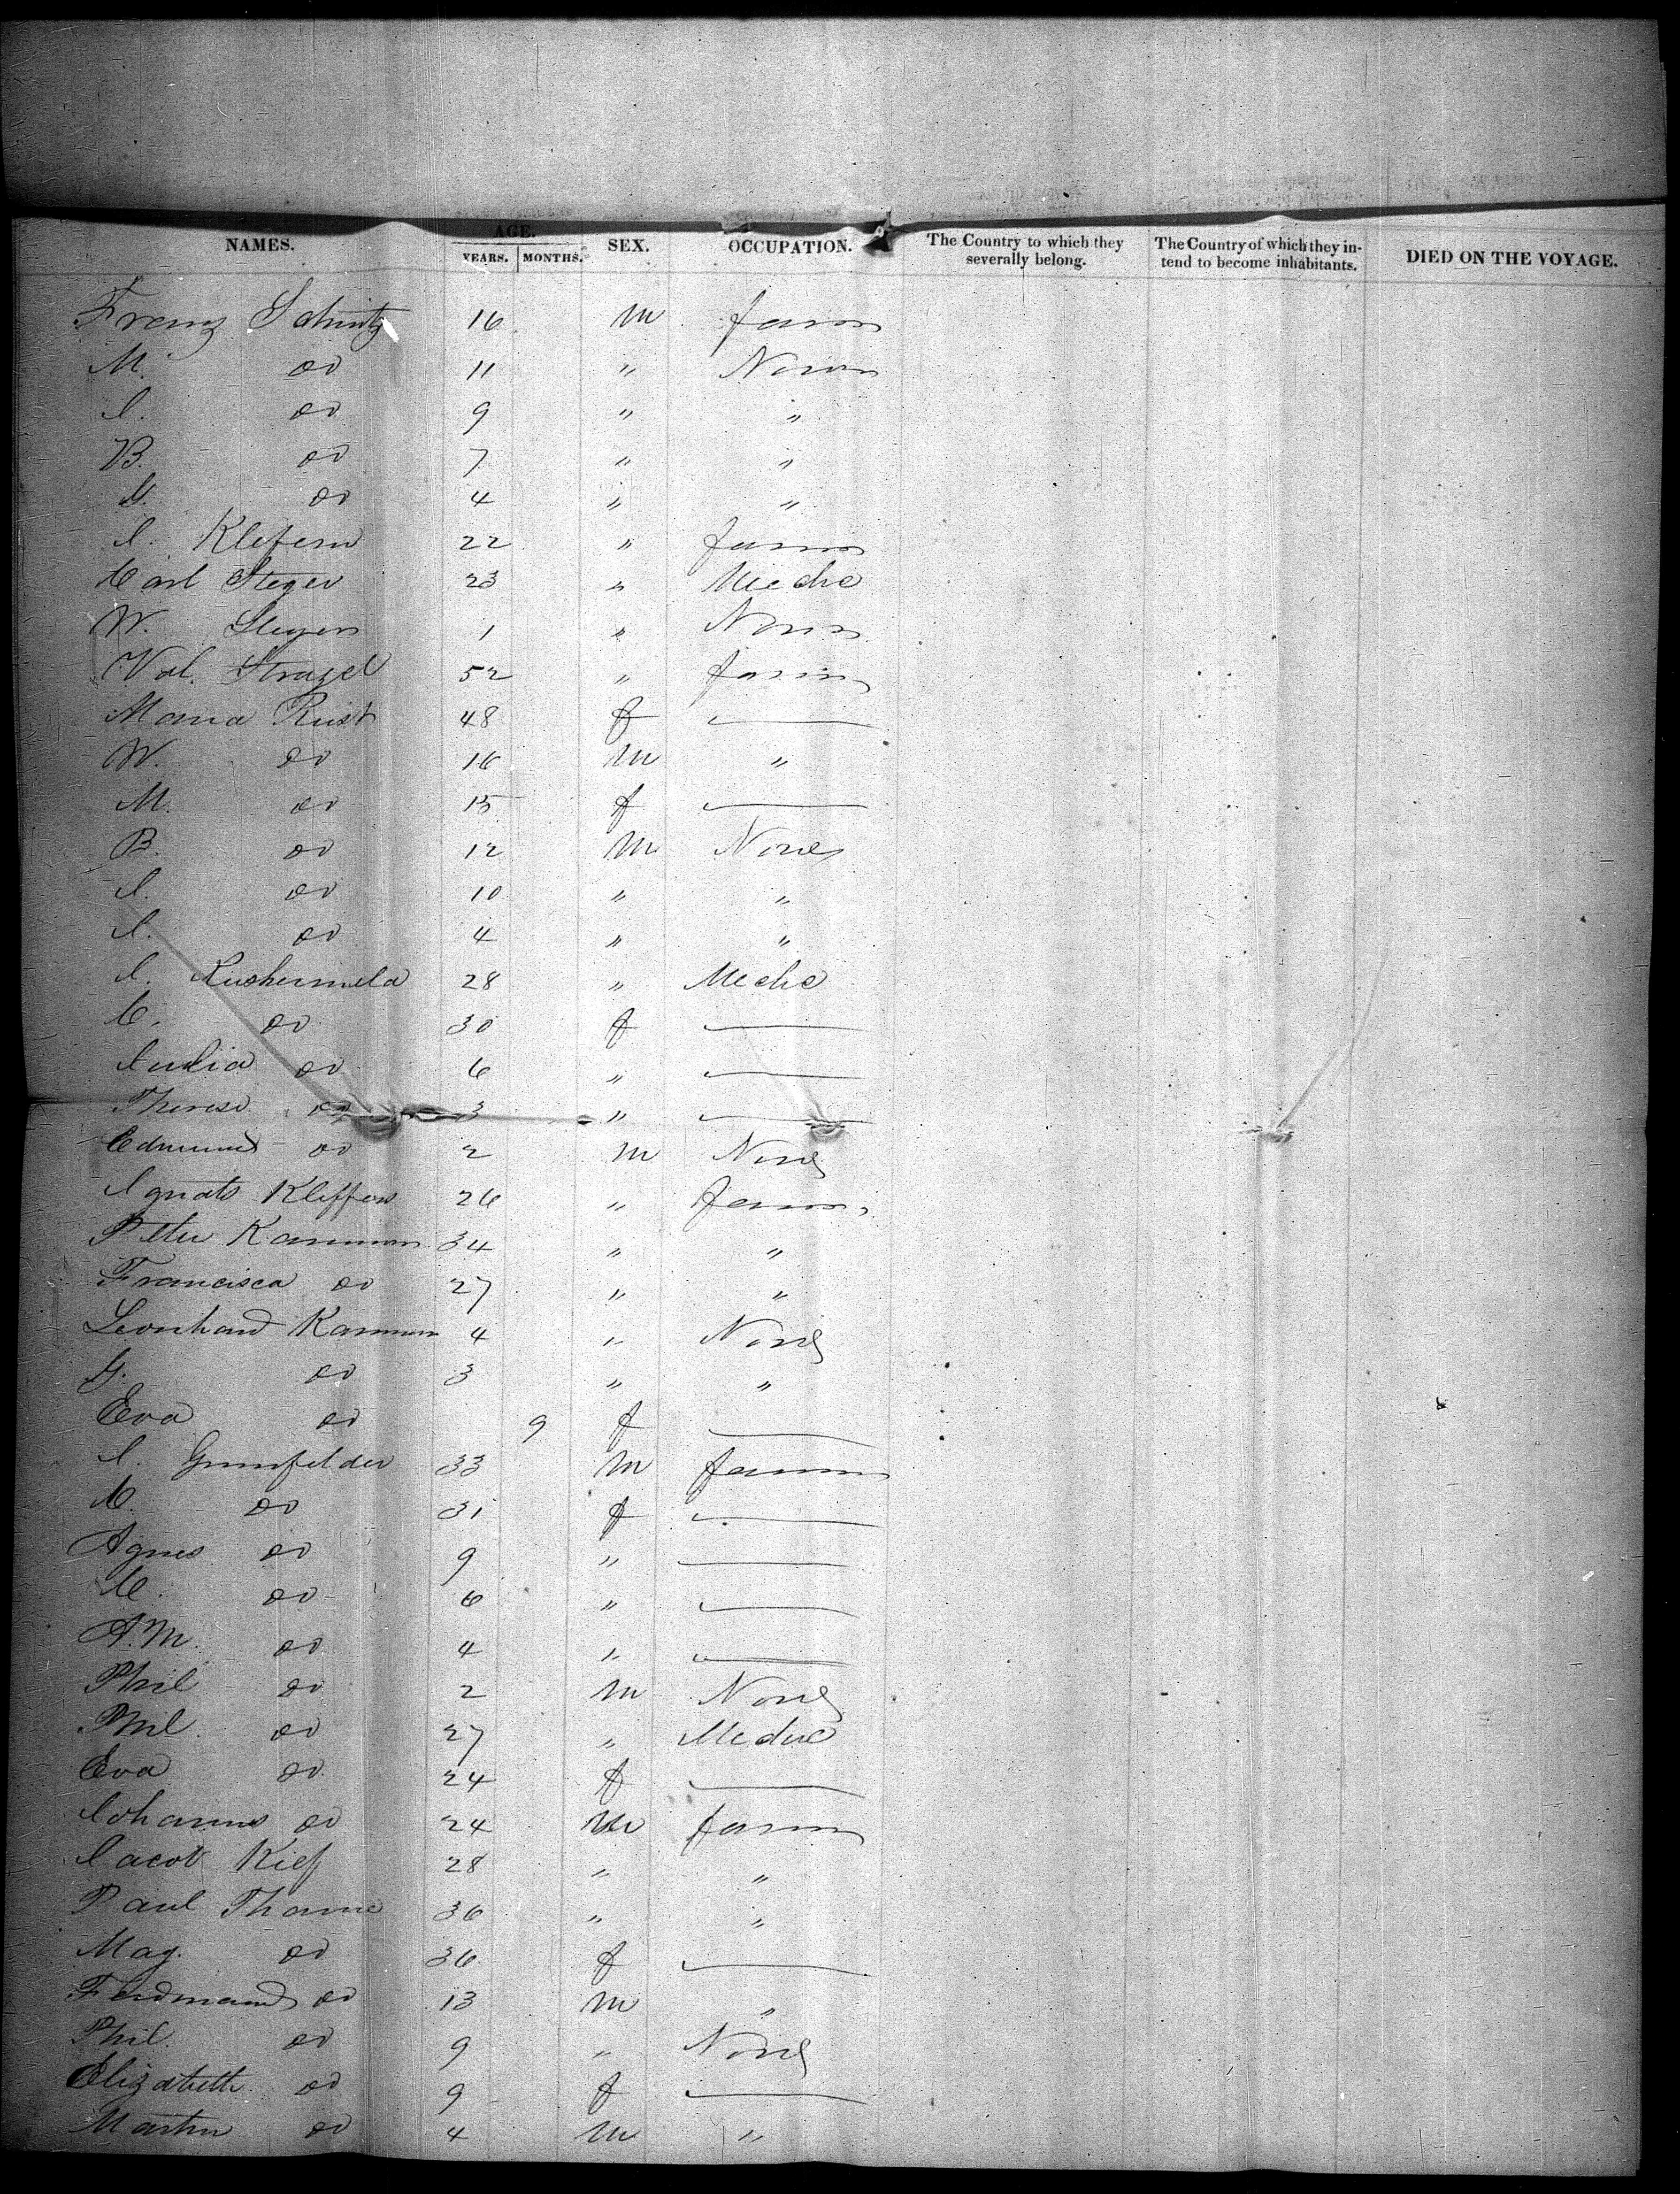 NAMES. AGE. YEARS. MONTHS. SEX. OCCUPATION. The Country to which they severally belong. The Country of which they intend to become inhabitants. DIED ON THE VOYAGE.
Franz Schutz 16 m farm
M. do 11 " None
I. do 9 " "
B. do 7 " "
G. do 4 " "
I. Klefern 22 " farm
Carl Steger 23 " Mecha
W. Steger 1 " None
Val. Strazel 52 " farm
Maria Rust 48 f —
W. do 16 m "
M. do 15 f —
B. do 12 m None
I. do 10 " "
I. do 4 " "
I. Kushermela 28 " Mecha
C. do 30 f —
Iulia do 6 " —
Therese do 3 " —
Edmund do 2 m None
Ignats Kleffern 26 " farm
Peter Kamman 34 " "
Francisca do 27 " "
Leonhard Kamman 4 " None
G. do 3 " "
Eva do 9 f —
I. Grunfelder 33 m farm
C. do 31 f —
Agnes do 9 " —
C. do 6 " —
A.M. do 4 " —
Phil do 2 m None
Phil do 27 " Mecha
Eva do 24 f —
Iohanns do 24 m farm
Iacob Kief 28 " "
Paul Thame 36 " "
Mag. do 36 f —
Ferdinand do 13 m "
Phil. do 9 " None
Elizabeth do 9 f —
Martin do 4 m "